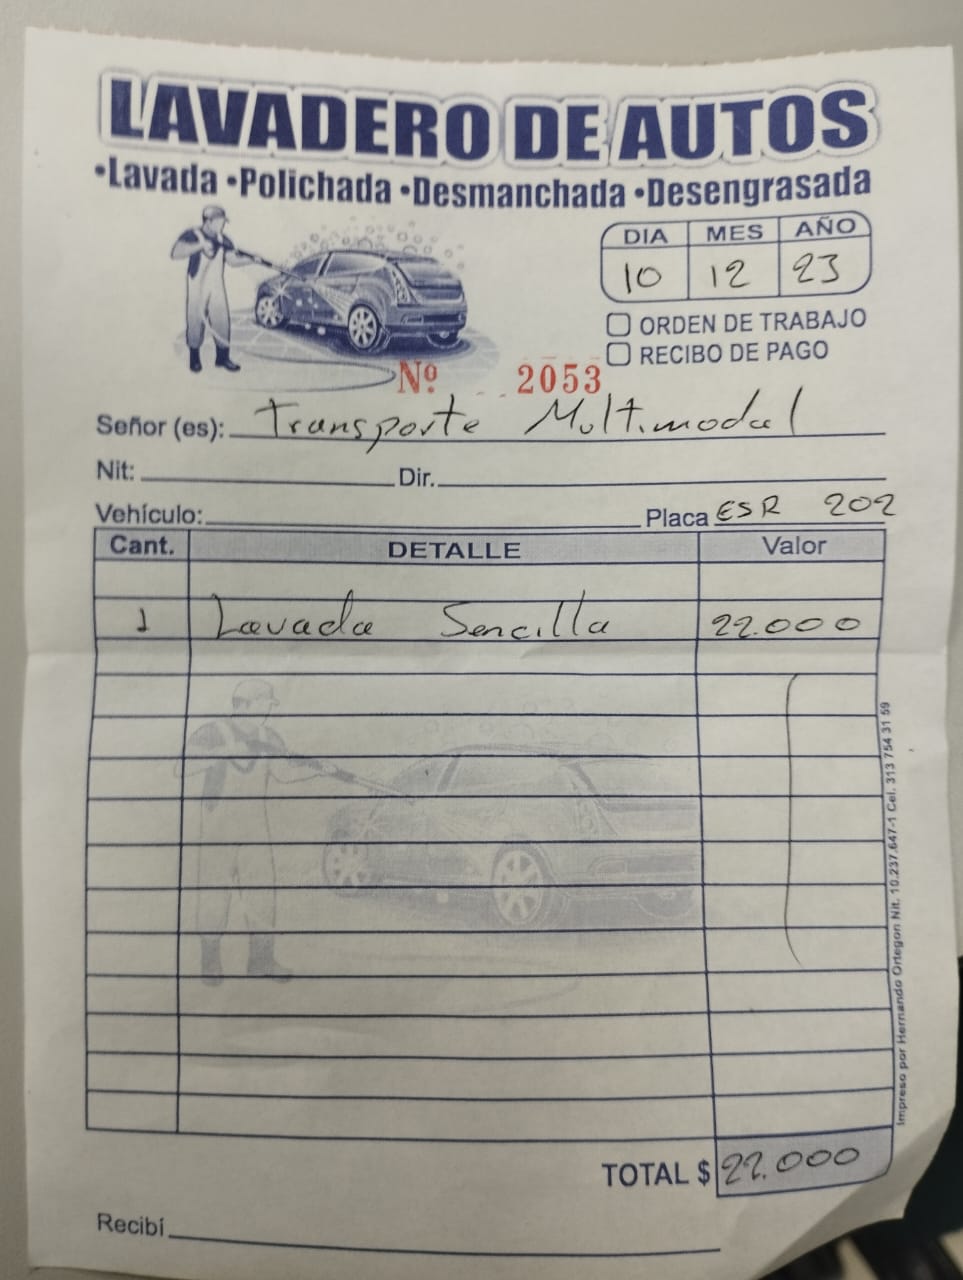 LAVADERO DE AUTOS
•Lavada •Polichada •Desmanchada •Desengrasada
DIA MES AÑO
10 12 23
ORDEN DE TRABAJO
RECIBO DE PAGO
Nº 2053
Señor (es): Transporte Multimodal
Nit: Dir.
Vehículo: Placa ESR 202
Cant. DETALLE Valor
1 Lavada Sencilla 22.000
TOTAL $ 22.000
Recibí
Impreso por Hernando Ortegon Nit. 10.237.647-1 Cel. 313 754 31 59